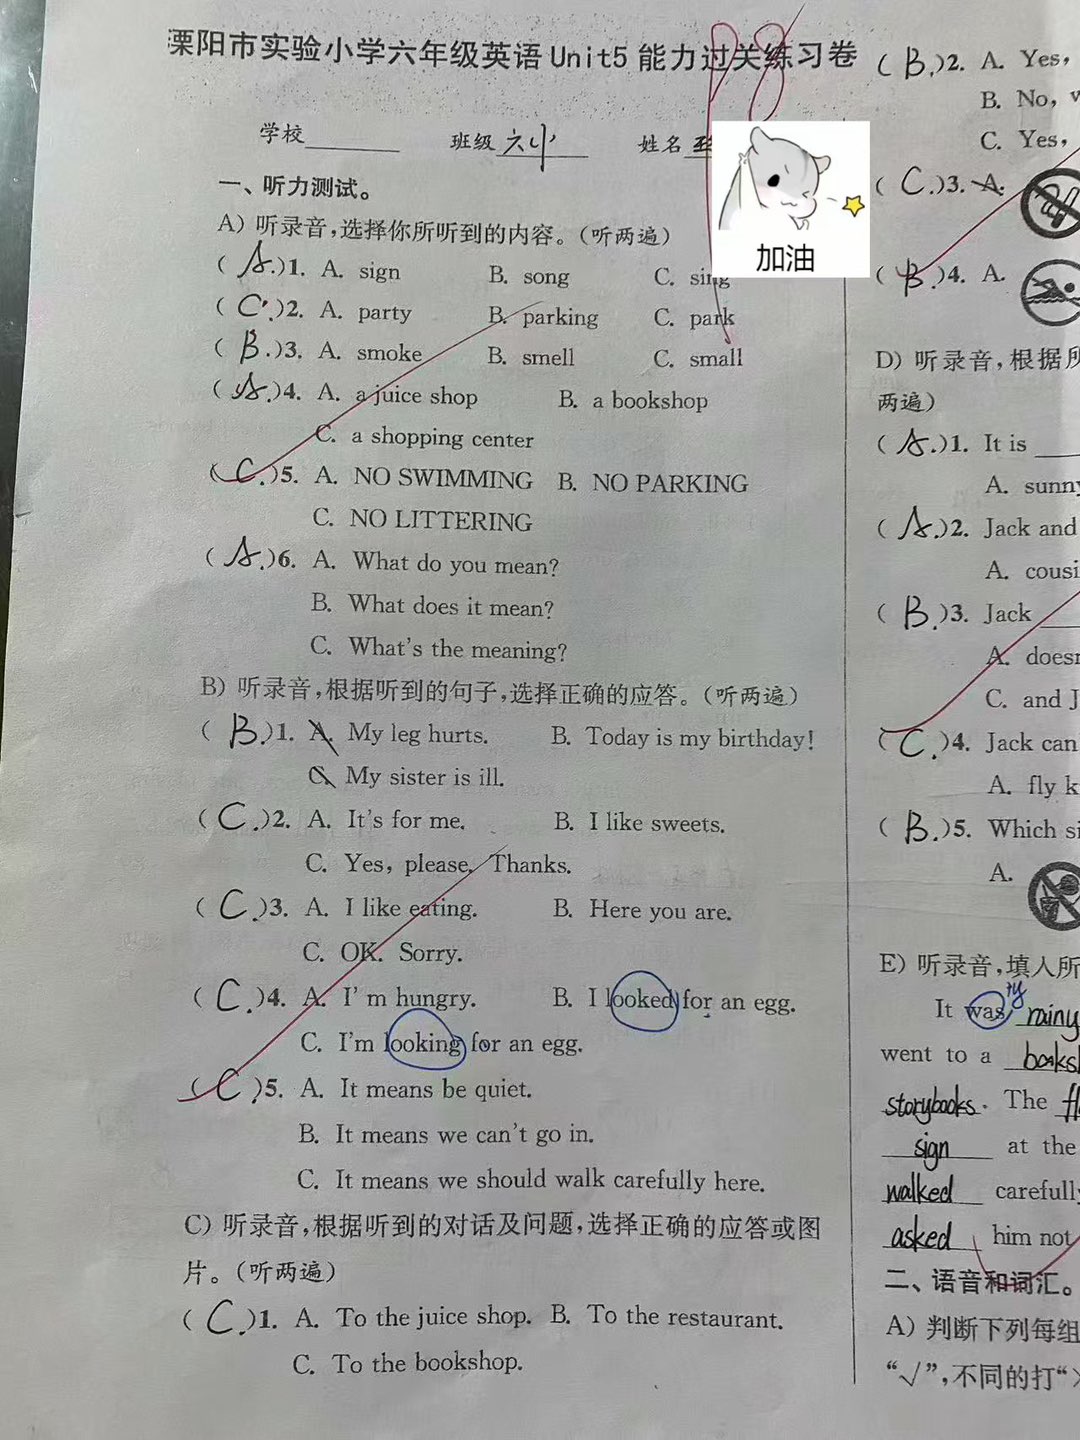 溧阳市实验小学六年级英语Unit5能力过关练习卷
98
学校 班级 六 姓名
加油
一、听力测试。
A) 听录音,选择你所听到的内容。(听两遍)
( A.)1. A. sign B. song C. sing
( C.)2. A. party B. parking C. park
( B.)3. A. smoke B. smell C. small
( A.)4. A. a juice shop B. a bookshop
C. a shopping center
( C.)5. A. NO SWIMMING B. NO PARKING
C. NO LITTERING
( A.)6. A. What do you mean?
B. What does it mean?
C. What's the meaning?
B) 听录音,根据听到的句子,选择正确的应答。(听两遍)
( B.)1. A. My leg hurts. B. Today is my birthday!
C. My sister is ill.
( C.)2. A. It's for me. B. I like sweets.
C. Yes, please. Thanks.
( C.)3. A. I like eating. B. Here you are.
C. OK. Sorry.
( C.)4. A. I'm hungry. B. I looked for an egg.
C. I'm looking for an egg.
( C.)5. A. It means be quiet.
B. It means we can't go in.
C. It means we should walk carefully here.
C) 听录音,根据听到的对话及问题,选择正确的应答或图
片。(听两遍)
( C.)1. A. To the juice shop. B. To the restaurant.
C. To the bookshop.
( B.)2. A. Yes,
B. No,
C. Yes,
( C.)3. A.
( B.)4. A.
D) 听录音,根据
两遍)
( A.)1. It is
A. sunny
( A.)2. Jack and
A. cousi
( B.)3. Jack
A. doesn
C. and J
( C.)4. Jack can
A. fly k
( B.)5. Which si
A.
E) 听录音,填入所
It was rainy
went to a books
storybooks. The fl
sign at the
walked carefully
asked him not
二、语音和词汇。
A) 判断下列每组
“√”,不同的打“×